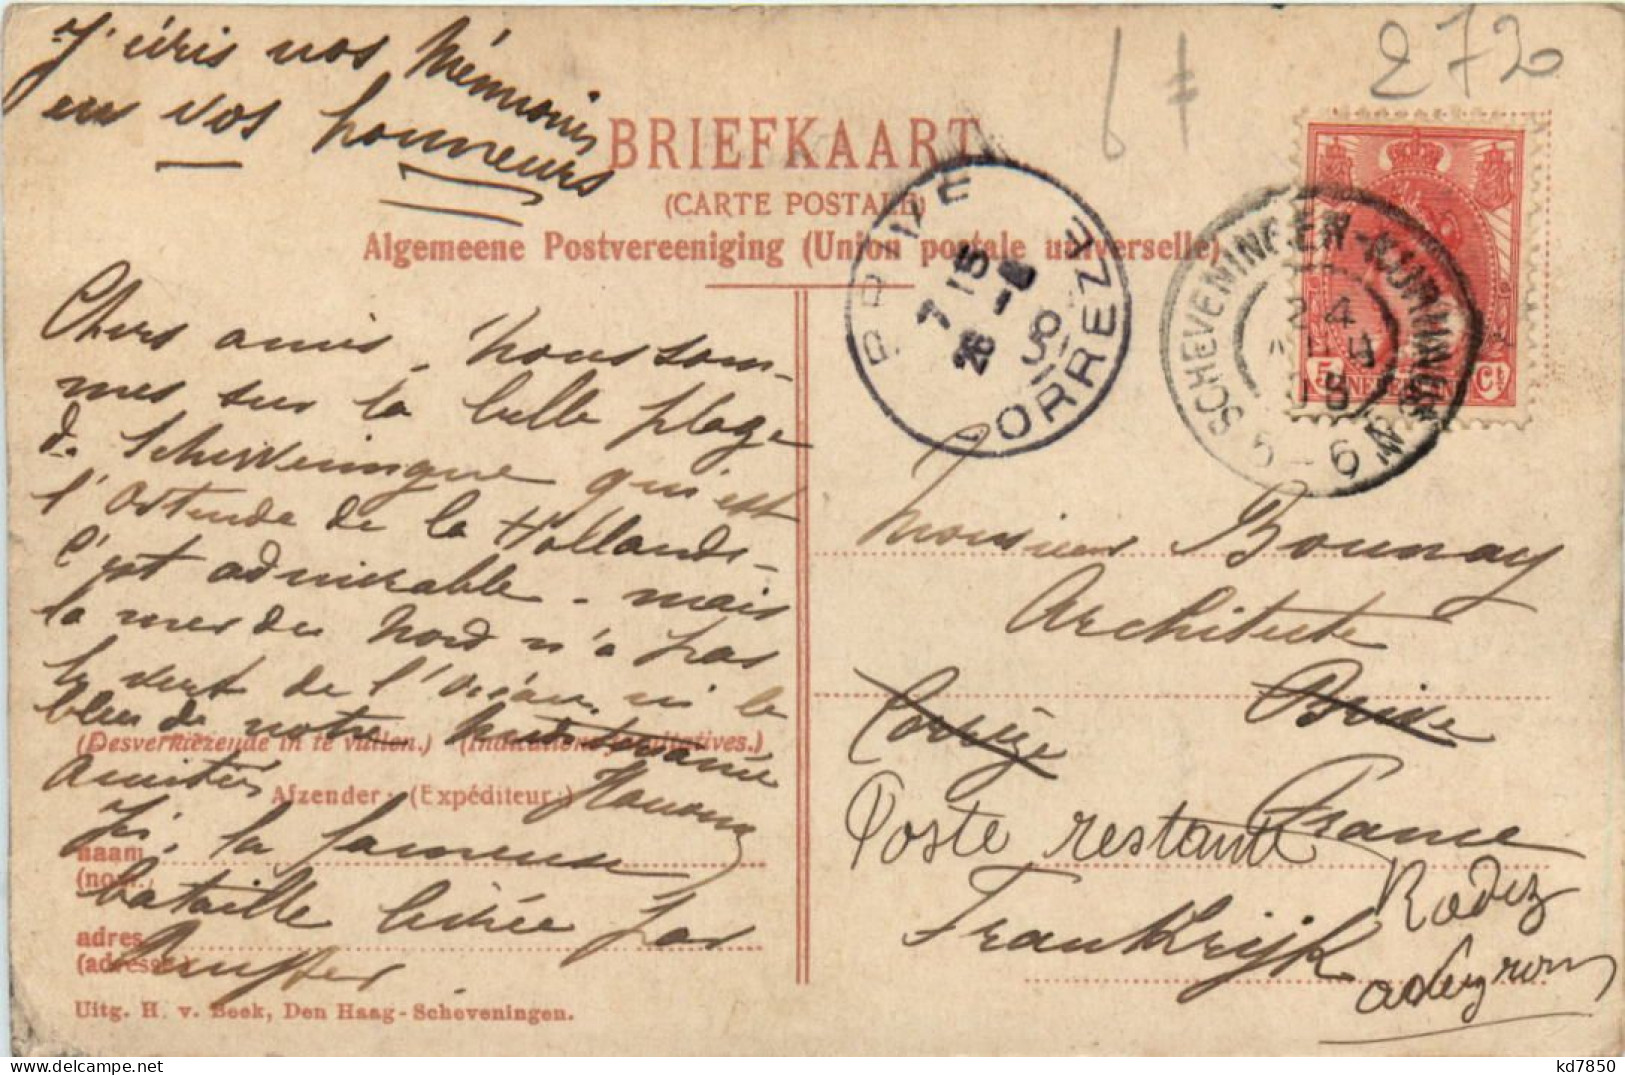 J'écris nos Mémoires
en vos honneurs
272
BRIEFKAART
(CARTE POSTALE)
Algemeene Postvereeniging (Union postale universelle)
BRIVE
7 15
26 -8
CORREZE
SCHEVENINGEN-KURHAUS
24
5-6 N
5 Ct
Chers amis, Nous som-
mes sur la belle plage
de Scheveningue qui est
l'Ostende de la Hollande-
C'est admirable - mais
la mer du Nord n'a pas
le vert de l'Océan, ni le
bleu de notre Méditerranée
(Desverkiezende in te vullen.) (Indications facultatives.)
Amitiés
Afzender: (Expéditeur:)
la fameuse
naam
(nom.)
bataille livrée par
adres
(adresse.)
Ruyter
Uitg. H. v. Beek, Den Haag-Scheveningen.
Monsieur Bounay
Architecte
Corrèze Brive
France
Poste restante
Rodez
Frankrijk
Aveyron
kd7850